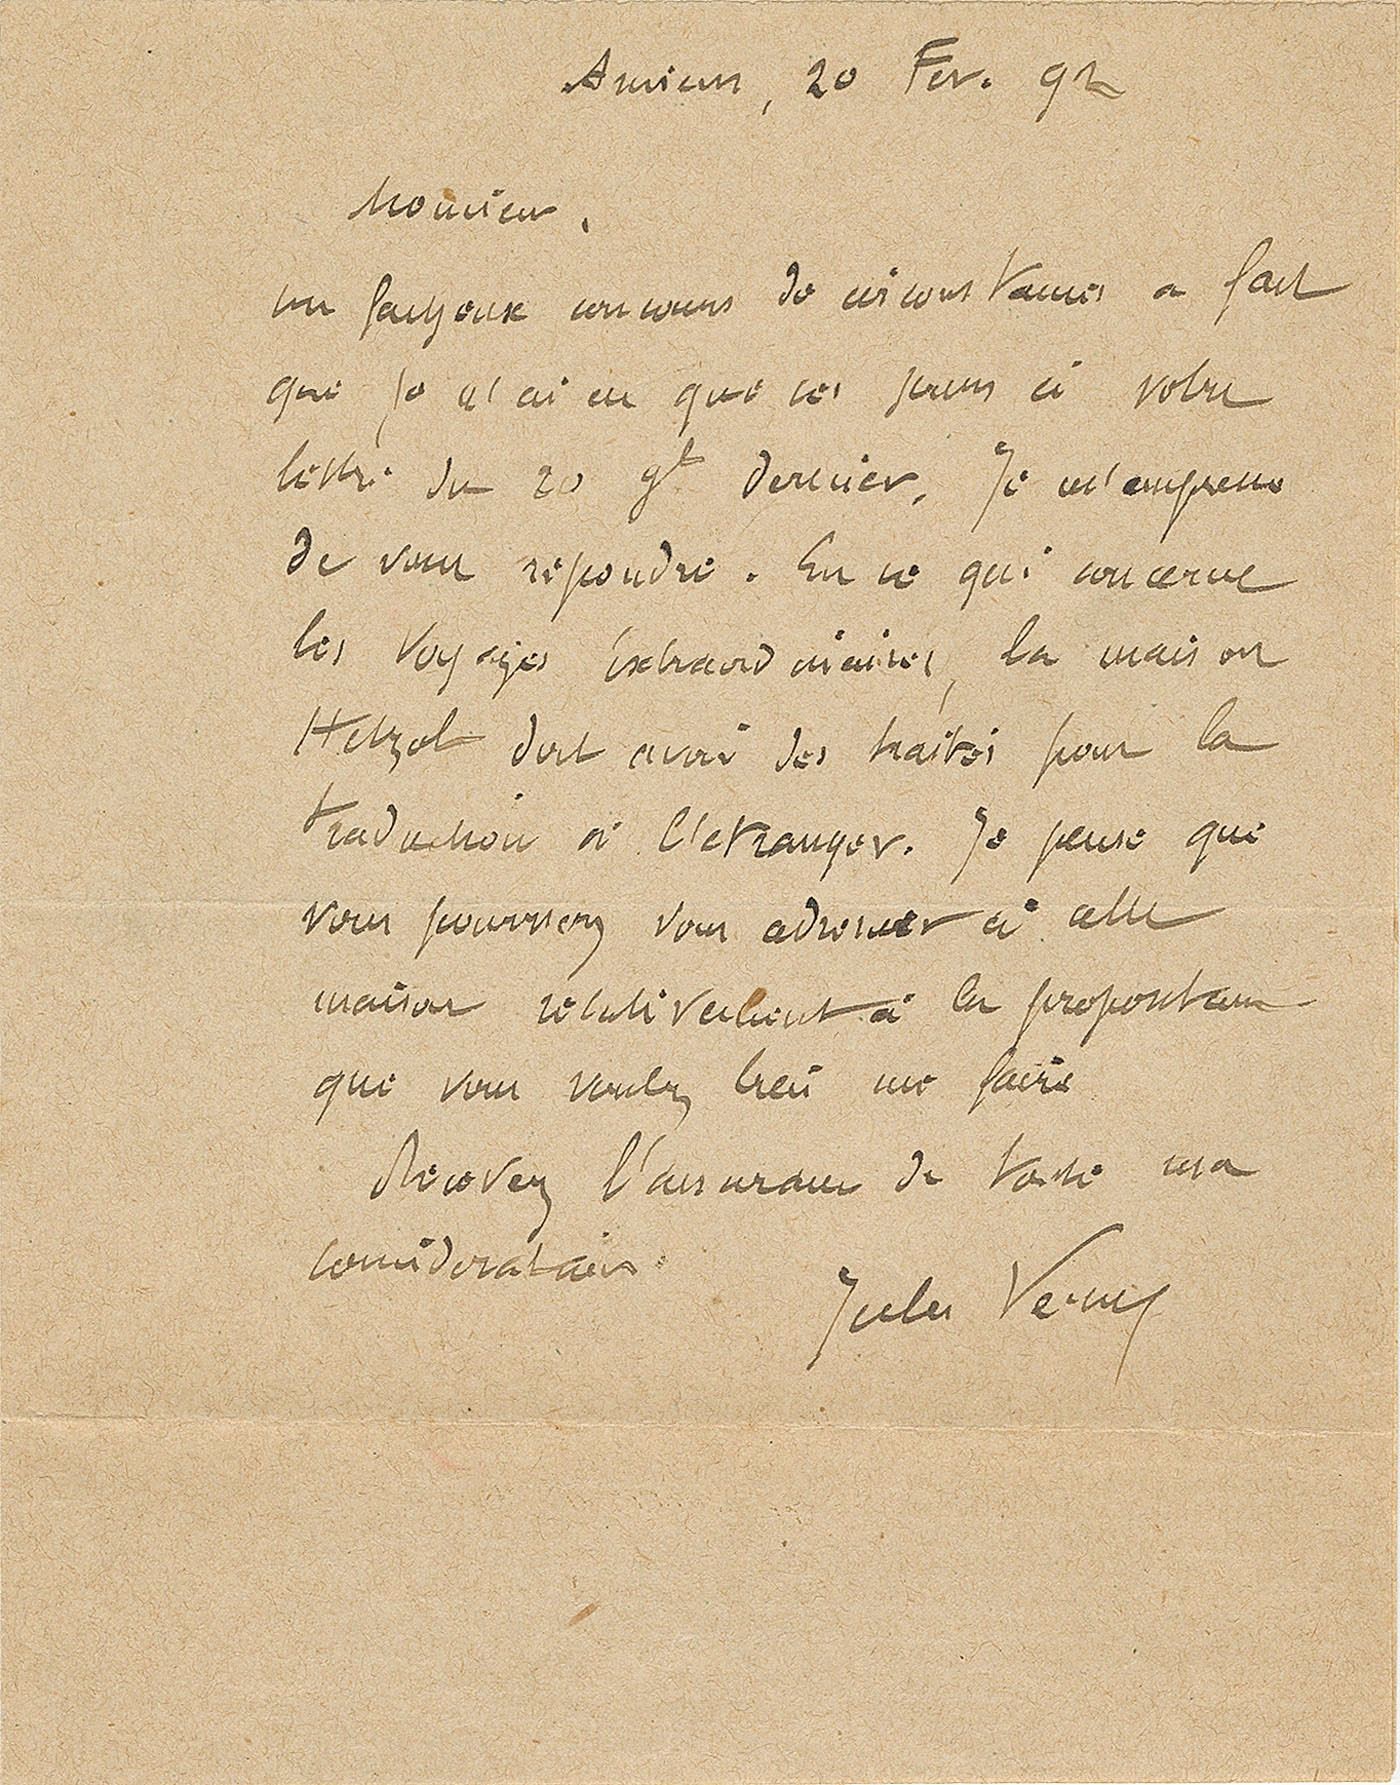 Amiens, 20 Fev. 92
Monsieur,
un facheux concours de circonstances a fait
que je n'ai eu que ces jours ci votre
lettre du 20 9b dernier. Je m'empresse
de vous répondre. En ce qui concerne
les Voyages Extraordinaires, la maison
Hetzel doit avoir des traités pour la
traduction à l'étranger. Je pense que
vous pourriez vous adresser à cette
maison relativement à la proposition
que vous voulez bien me faire
Recevez l'assurance de toute ma
considération.
Jules Verne